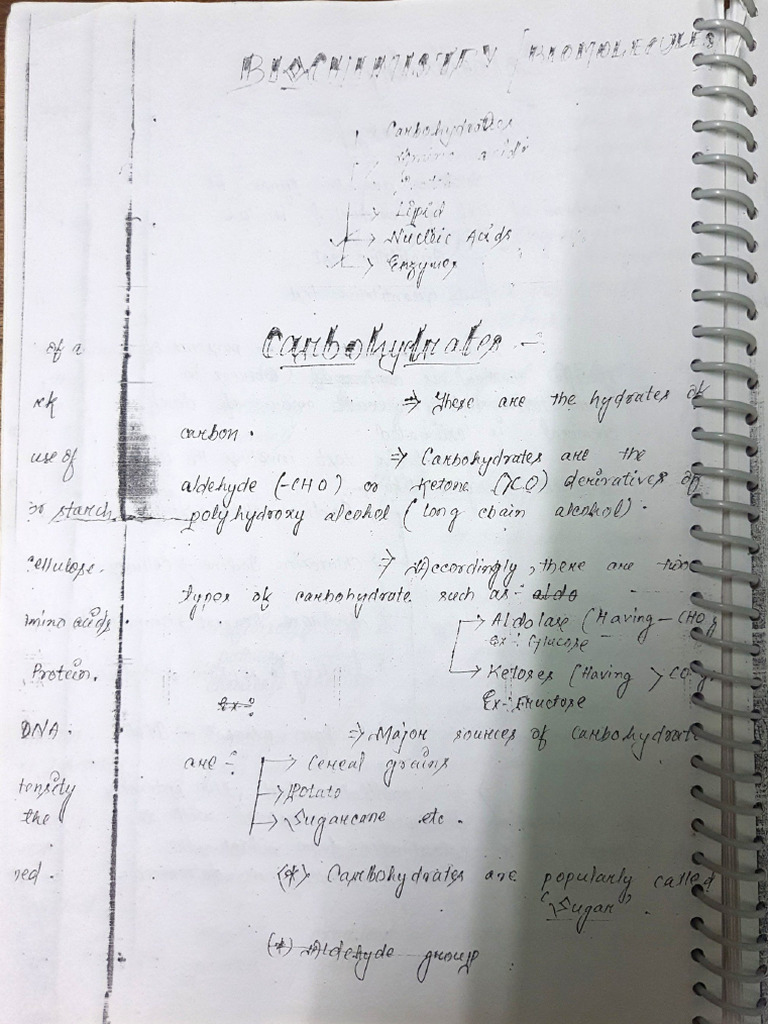 BIOCHEMISTRY / BIOMOLECULES
Carbohydrates
Amino acids
→ Lipid
→ Nucleic Acids
→ Enzymes
Carbohydrates -
of a
⇒ These are the hydrates of
rk
carbon.
⇒ Carbohydrates are the
use of
aldehyde (-CHO) or ketone (>CO) derivatives of
or starch
polyhydroxy alcohol (long chain alcohol).
cellulose.
⇒ Accordingly, there are two
types of carbohydrate such as - aldo
amino acids.
→ Aldolase (Having -CHO)
Ex: Glucose
Protein.
→ Ketoses (Having >CO)
Ex:
Ex: Fructose
DNA.
⇒ Major sources of carbohydrate
are - → Cereal grains
tensity
→ Potato
the
→ Sugarcane etc.
ned.
(*) Carbohydrates are popularly called
"Sugar".
(*) Aldehyde group